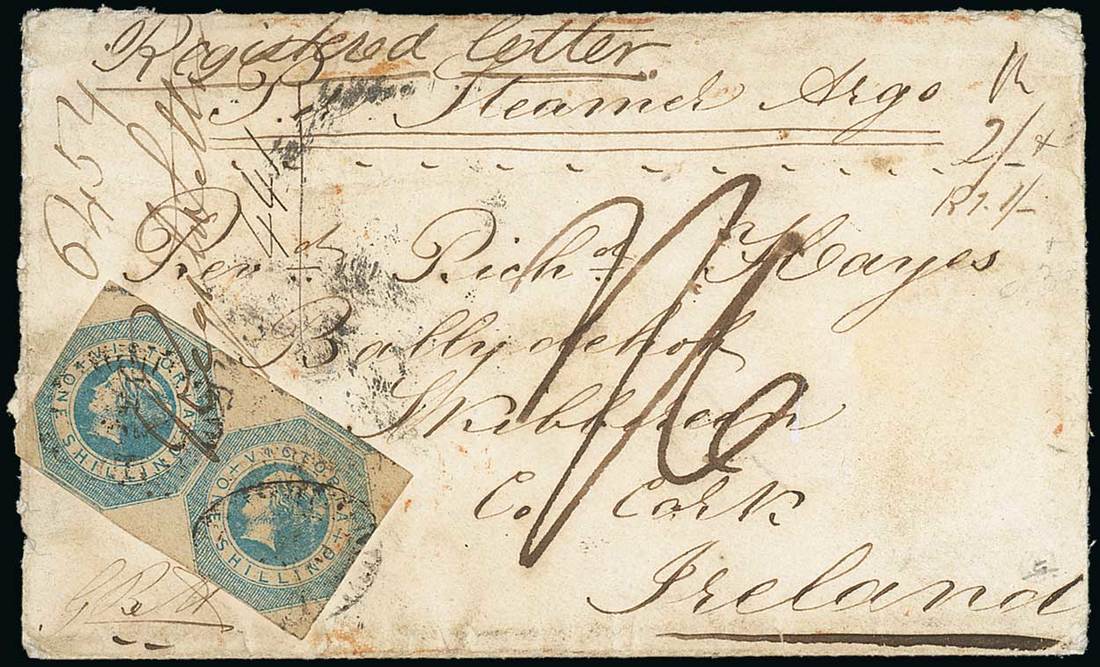 Registered Letter.
Pr Steamer Argo
R
2/-
R1. 1/-
6454
441
Revd. Richd. Hayes
Ballydehob
Skibbereen
Co. Cork
Ireland
1/6
VICTORIA ONE SHILLING
VICTORIA ONE SHILLING